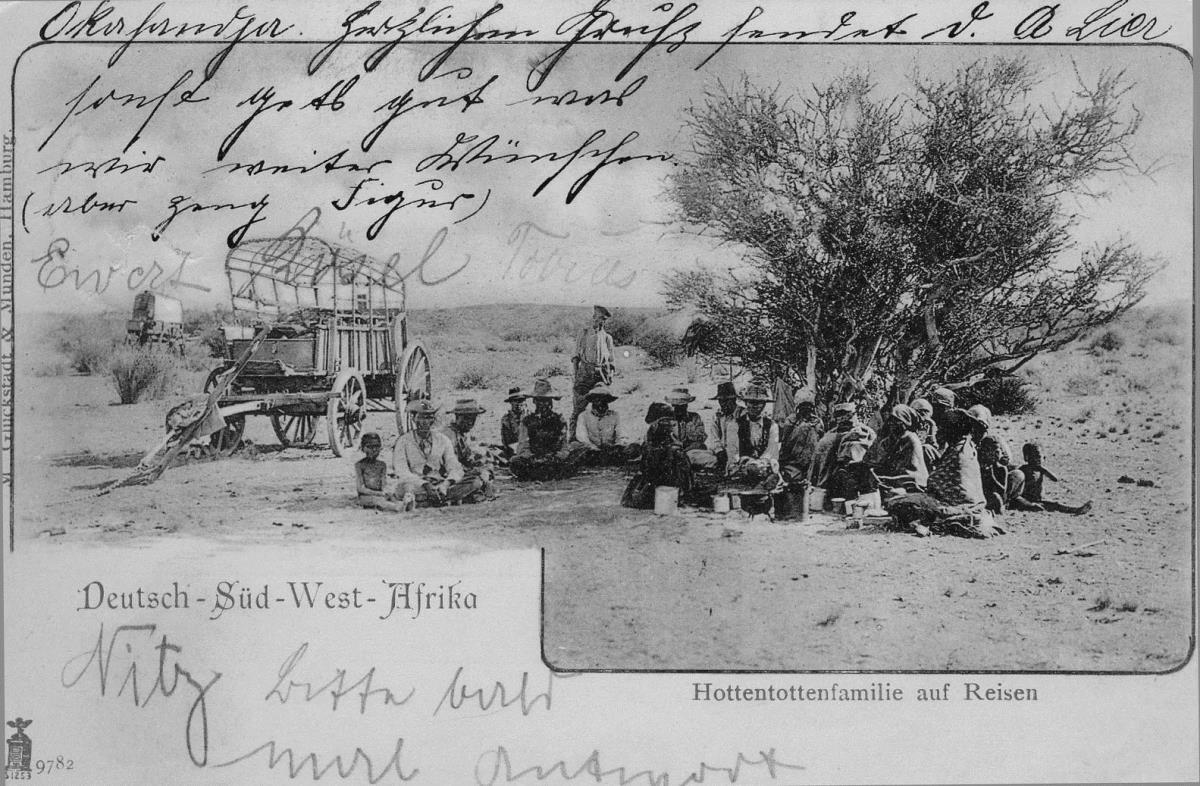 Okahandja. Herzlichen Gruß sendet d. A Lier
sonst gets gut was
wir weiter Wünschen
(aber zeng Figur)
Ewert Rösel Tobias
M. Glückstadt & Münden, Hamburg.
Deutsch-Süd-West-Afrika
Hottentottenfamilie auf Reisen
Nitz Bitte bald
mal Antwort
9782